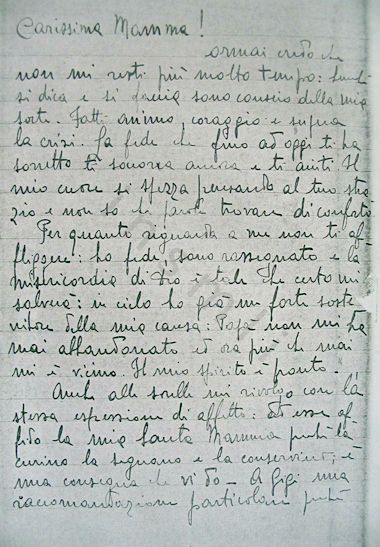 Carissima Mamma!
ormai credo che
non mi resti più molto tempo: 
si dica e si faccia sono conscio della mia
sorte. Fatti animo, coraggio e supera
la crisi. La fede che fino ad oggi ti ha
sorretto ti soccorra ancora e ti aiuti. Il
mio cuore si spezza pensando al tuo stra
zio e non so che parole trovare di conforto.
Per quanto riguarda a me non ti af-
fliggere: ho fede, sono rassegnato e la
misericordia di Dio è tale che certo mi
salverà: in cielo ho già un forte soste
nitore della mia causa: Papà non mi ha
mai abbandonato ed ora più che mai
mi è vicino. Il mio spirito è pronto.
Anche alle sorelle mi rivolgo con la
stessa espressione di affetto: ad esse af-
fido la mia Santa Mamma perché la
curino la seguano e la conservino; è
una consegna che vi do - A Gigi una
raccomandazione particolare perché